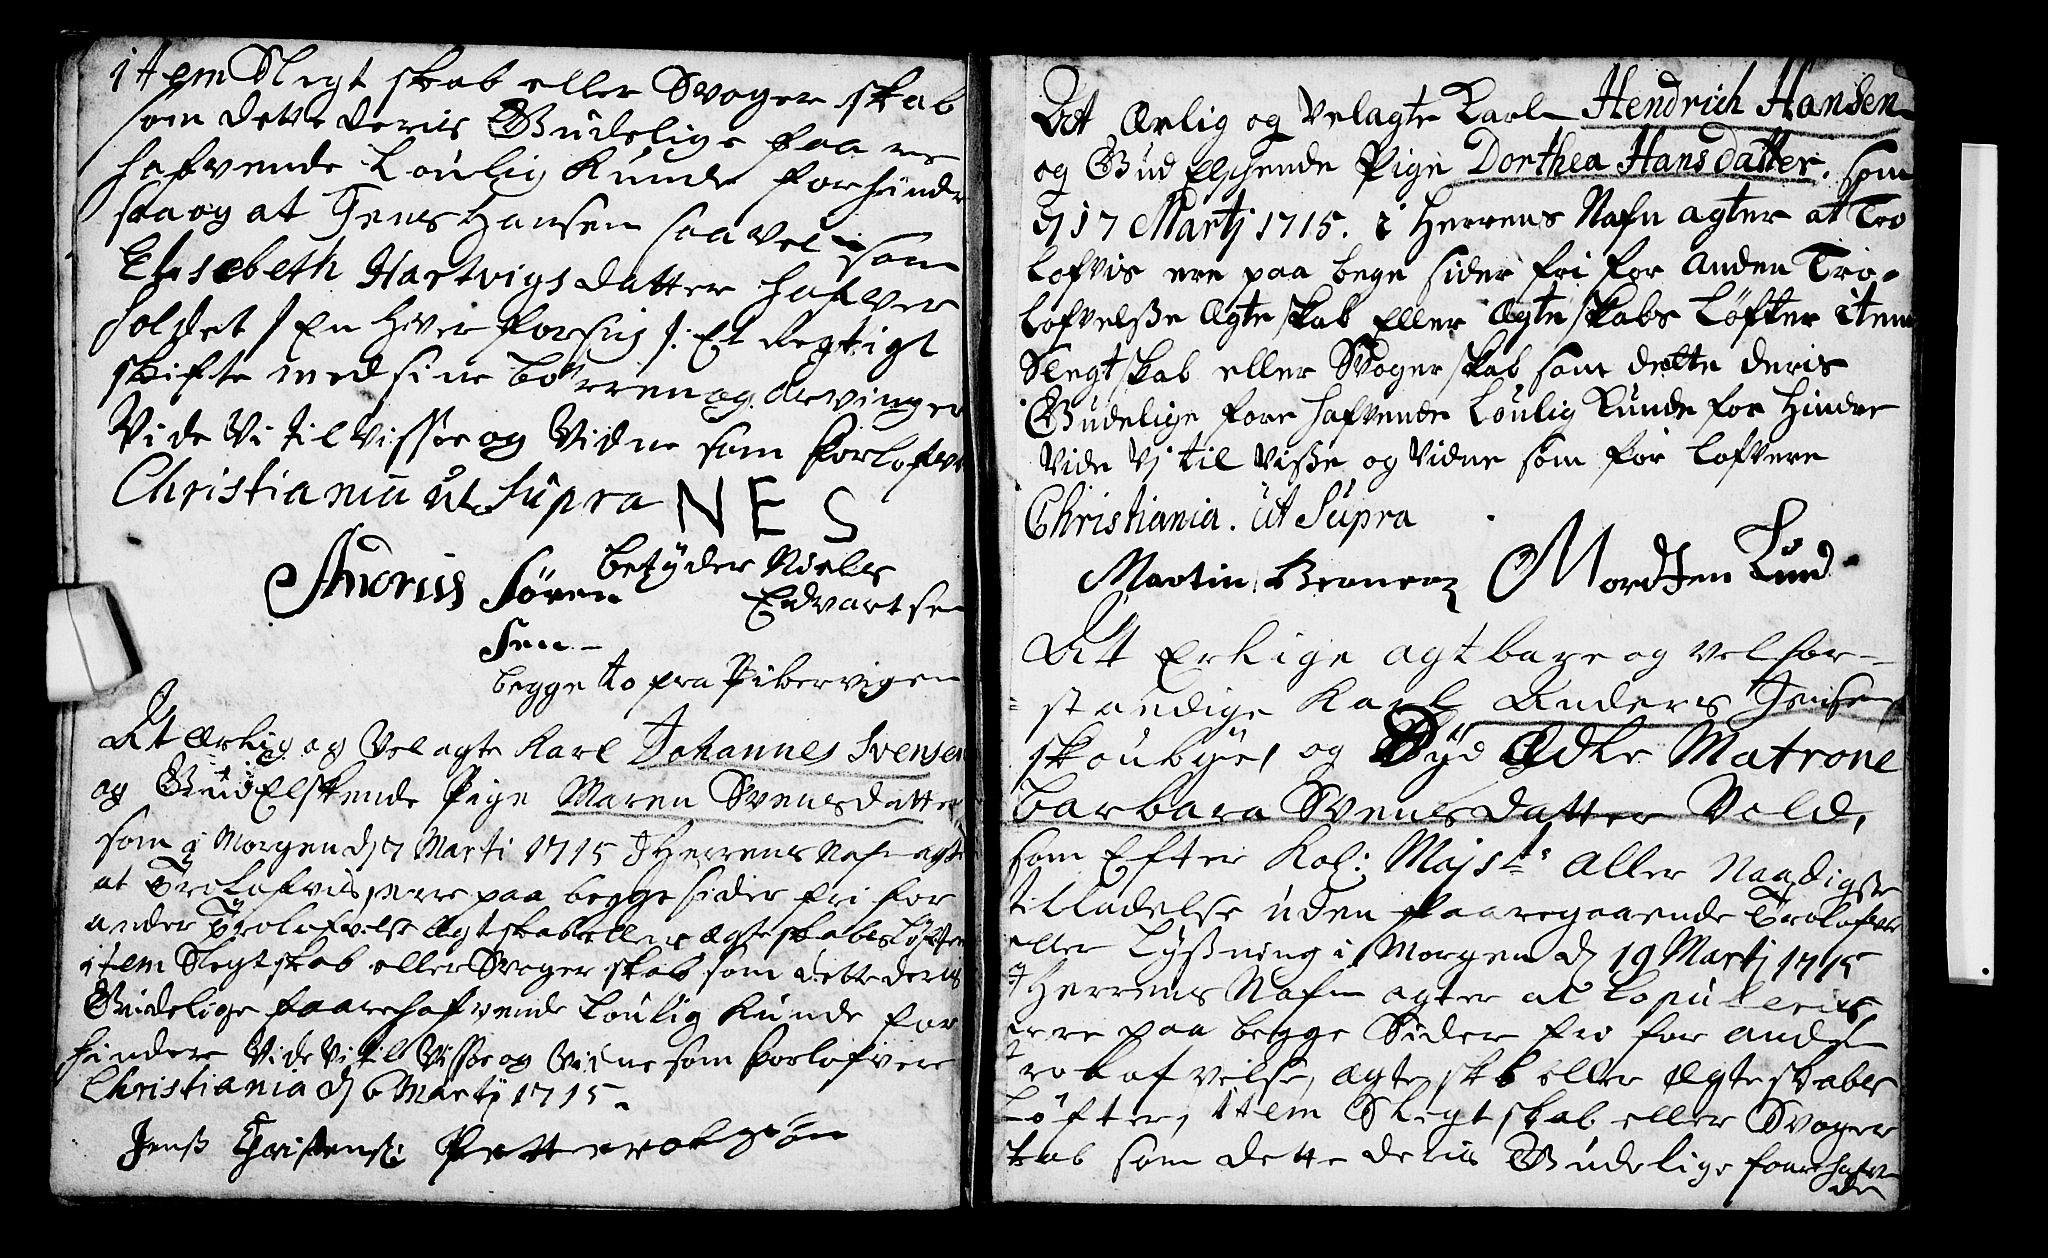 item Slegt skab eller Svoger skab
som dette deris Gudelige faare
hafvende Loulig Kunde forhindre
saa og at Jens Hansen saavel som
Elisebeth Hartvigsdatter hafver
holdet /: En hver for sig :/ Et Regtigt
skifte med sine børren og Arvinger
Vide Vi til Visse og Vidne som Forlofvere
Christiania ut Supra N E S
betyder Niels
Andrius Søren Edvartsen
sen
begge to fra Pibervigen
At Ærlig og Vel agte Karl Johannes Svensen
og GudElskende Pige Maren Svensdatter
som i Morgen d 7 Marti 1715 J Herrens Nafn agter
at Trolofvis, ere paa begge sider fri for
anden Trolofvelse Ægteskab eller Ægteskabs Løfter
item Slegt skab eller Svoger skab som dette deris
Gudelige faarehafvende Loulig Kunde for
hindre Vide Vi til Visse og Vidne som Forlofvere
Christiania d 6 Martij 1715.
Jenß Christens:
At Ærlig og Velagte Karl Hendrich Hansen
og Gud Elskende Pige Dorthea Hansdatter. som
d 17 Martj 1715. i Herrens Nafn agter at Tro
lofvis ere paa bege sider fri for anden Tro-
lofvelße Ægteskab Eller Ægteskabs Løfter item
Slegtskab eller Svogerskab som dette deris
Gudelige fore hafvende Loulig Kunde for hindre
Vide Vj til Viße og Vidne som for lofvere
Christiania. ut Supra
Martin Mordten Lund
At Erlige agtbare og velfor-
standige Karl Anders Jensen
skoubye, og Dyd Ædle Matrone
Barbara Svens datter Vild,
som Efter Kol: Majsts Aller Naadigste
tilladelse uden faaregaaende Trolofvelse
eller Lyßning i Morgen d 19 Martj 1715
J Herrens Nafn agter at Copuleris
ere paa begge Sider fri for anden
Trolofvelse, Ægteskb eller Ægteskabs
Løfter, item Slegtskab eller Svoger
skab som dette deris Gudelige faarehafven
de